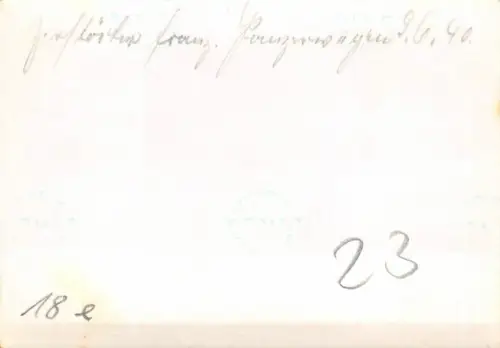 zerstörter franz. Panzerwagen 9.6.40.
23
18 e